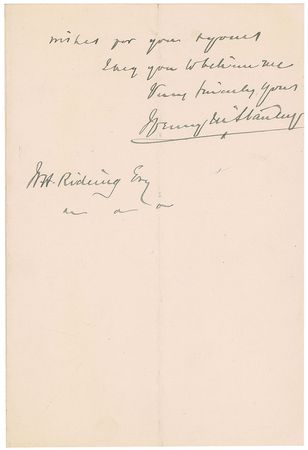 wishes for your
I beg you to believe me
Very sincerely Yours
Henry M Stanley
W.H. Rideing Esq